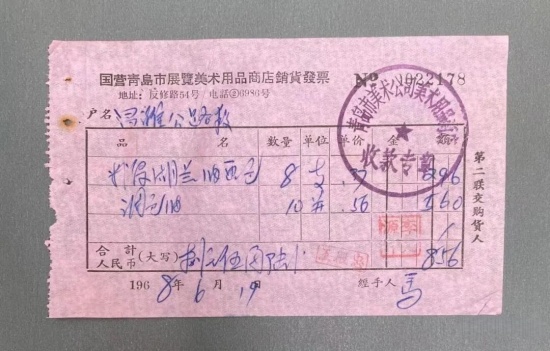 国营靑島市展覽美术用品商店銷貨發票
№ 0022178
地址：反修路54号 / 电話②6986号
户名
青島市美术公司美术用品商店
★
收款专章
品 名 数量 单位 单价 金 額
湖兰油画色 8 支 .37 2.96
调色油 10 .56 5.60
合計
人民币 (大写) 捌元伍角陆分 8.56
1968年6月19日 經手人 馬
第二联交购貨人